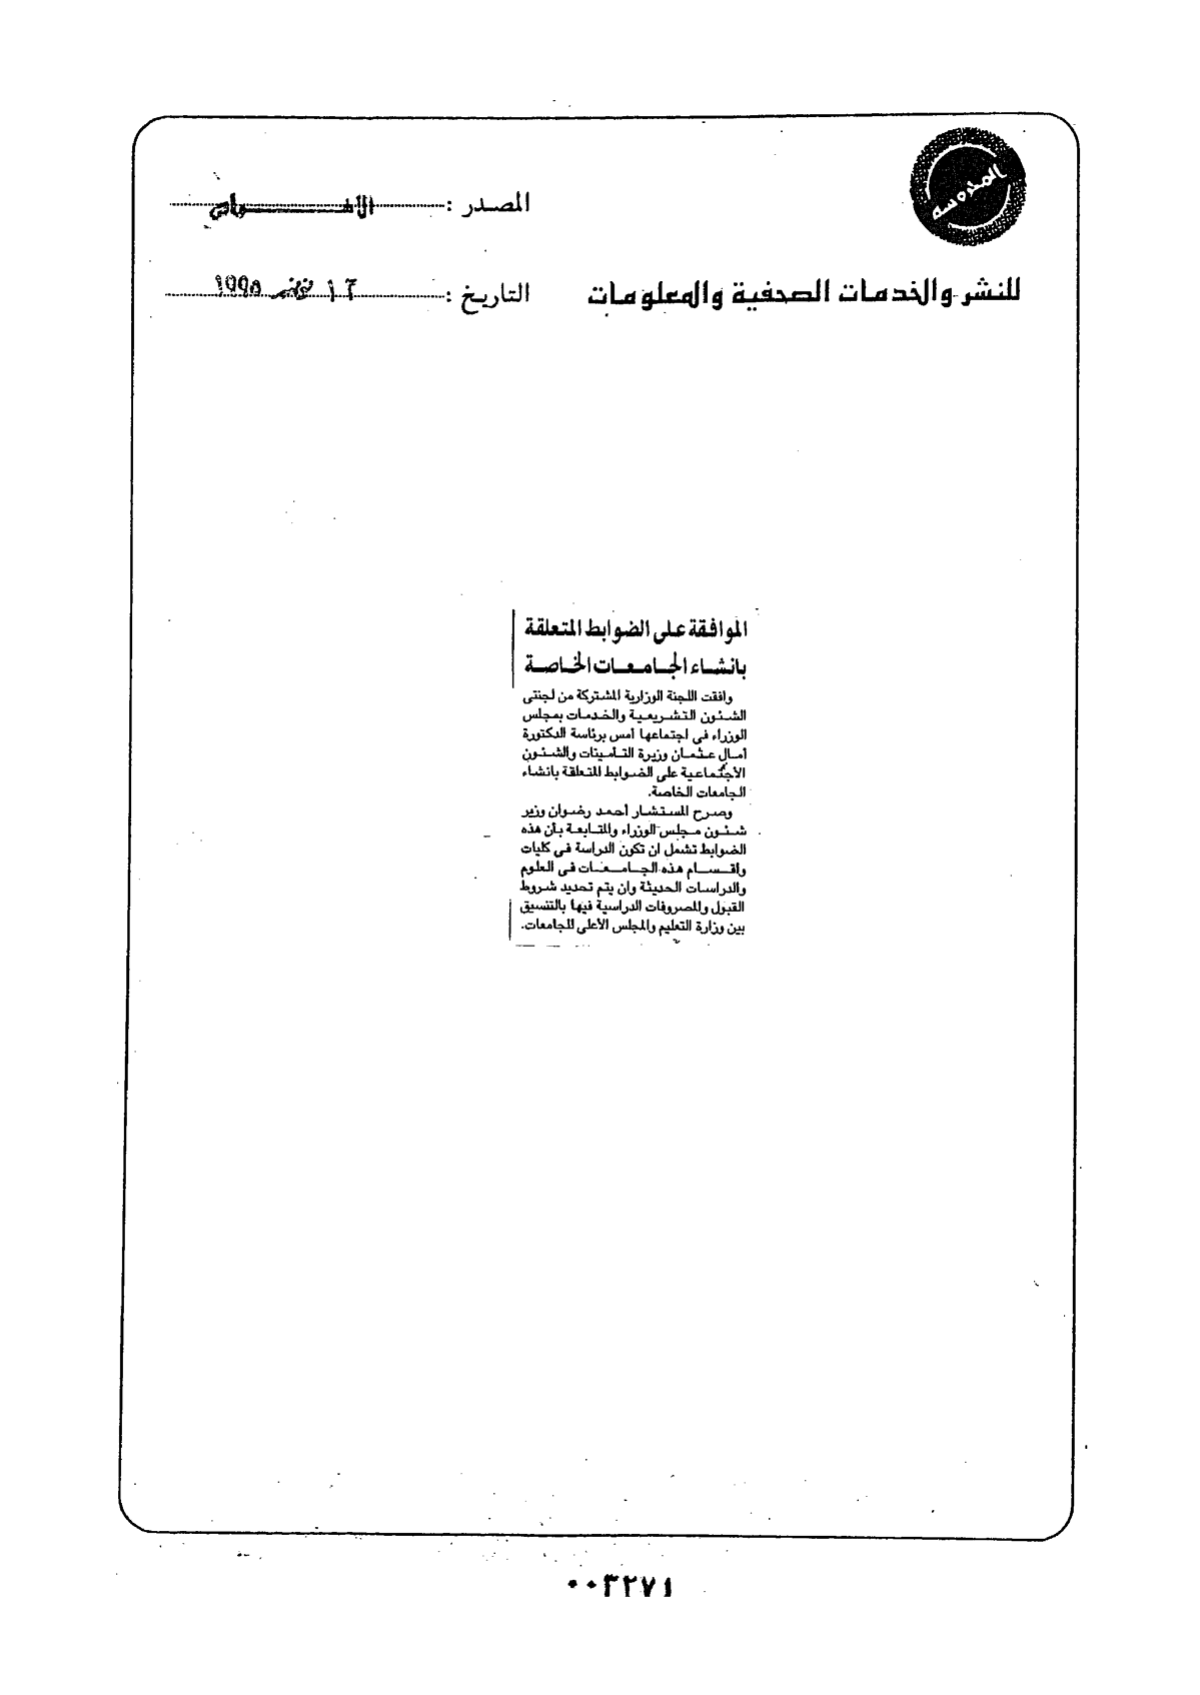 المحروسة
المصدر :
التاريخ : نوفمبر ١٩٩٥
للنشر والخدمات الصحفية والمعلومات
الموافقة على الضوابط المتعلقة
بانشاء الجامعات الخاصة
وافقت اللجنة الوزارية المشتركة من لجنتى
الشئون التشريعية والخدمات بمجلس
الوزراء فى اجتماعها أمس برئاسة الدكتورة
أمال عثمان وزيرة التامينات والشئون
الاجتماعية على الضوابط المتعلقة بانشاء
الجامعات الخاصة.
وصرح المستشار أحمد رضوان وزير
شئون مجلس الوزراء والمتابعة بأن هذه
الضوابط تشمل ان تكون الدراسة فى كليات
واقسام هذه الجامعات فى العلوم
والدراسات الحديثة وان يتم تحديد شروط
القبول والمصروفات الدراسية فيها بالتنسيق
بين وزارة التعليم والمجلس الأعلى للجامعات.
٠٠٣٢٧١